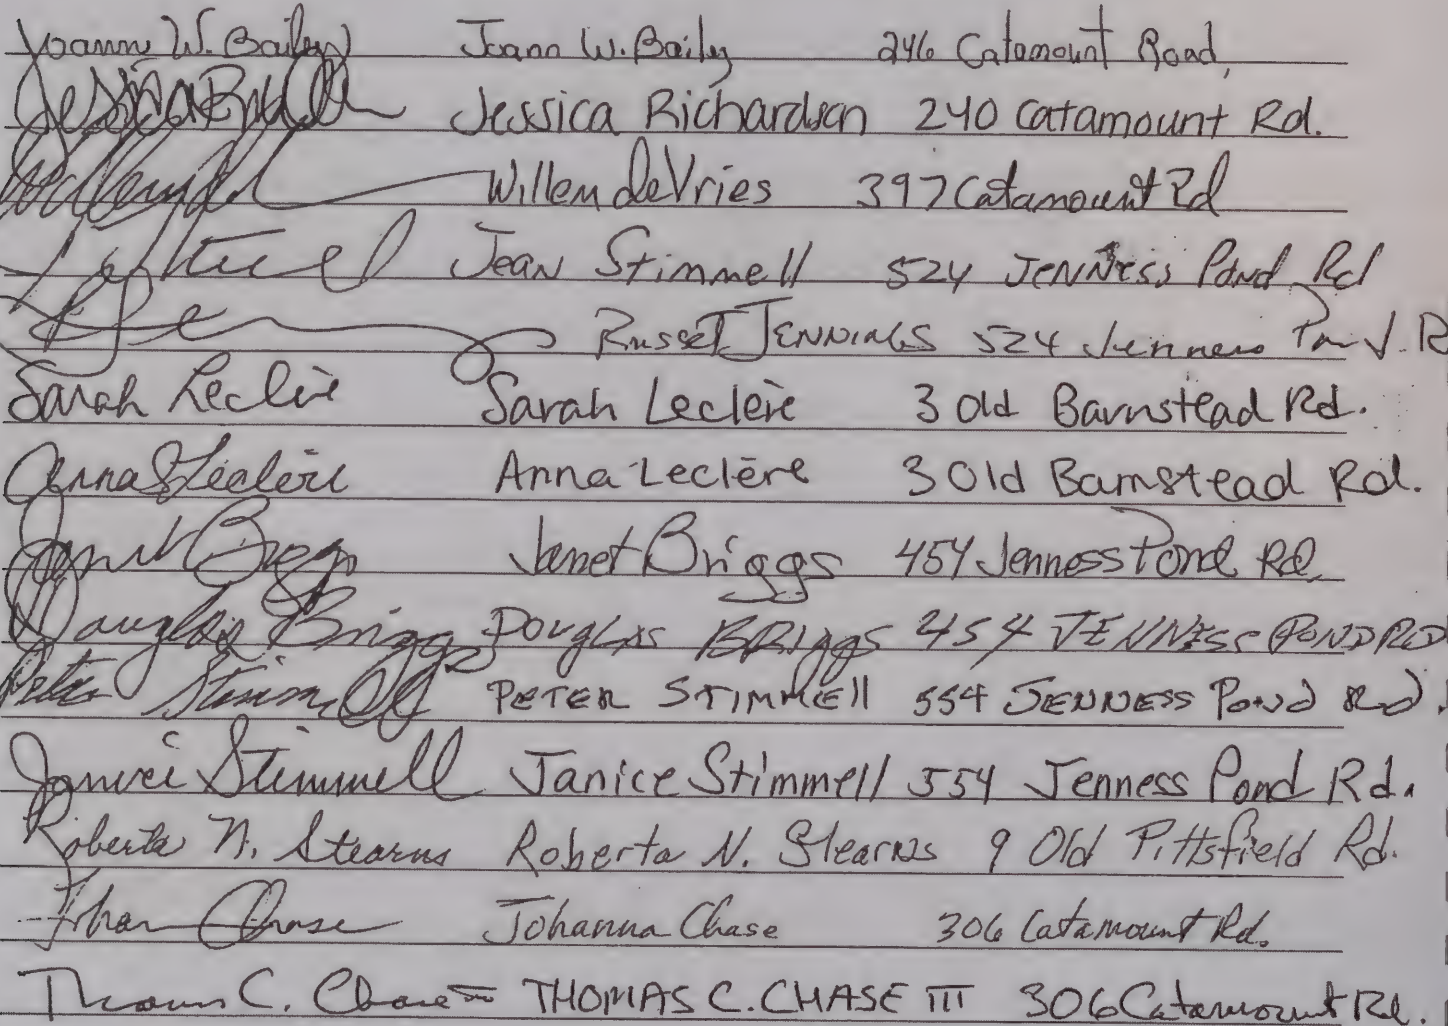 Joanne W. Bailey Joann W. Baily 246 Catamount Road,
Jessica Richardson 240 Catamount Rd.
Willem deVries 397 Catamount Rd
Jean Stimmell 524 JENNESS Pond Rd
Russet JENNINGS 524 Jenness Pond. R
Sarah Leclère Sarah Leclère 3 Old Barnstead Rd.
Anna Leclère Anna Leclère 3 Old Barnstead Rd.
Janet Briggs Janet Briggs 454 Jenness Pond Rd.
Douglas Briggs DOUGLAS BRIggs 454 JENNESS POND RD
Peter Stimmell PETER STIMMEll 554 JENNESS POND Rd.
Janice Stimmell Janice Stimmell 554 Jenness Pond Rd.
Roberta N. Stearns Roberta N. Stearns 9 Old Pittsfield Rd.
Johanna Chase Johanna Chase 306 Catamount Rd.
Thomas C. Chase III THOMAS C. CHASE III 306 Catamount Rd.